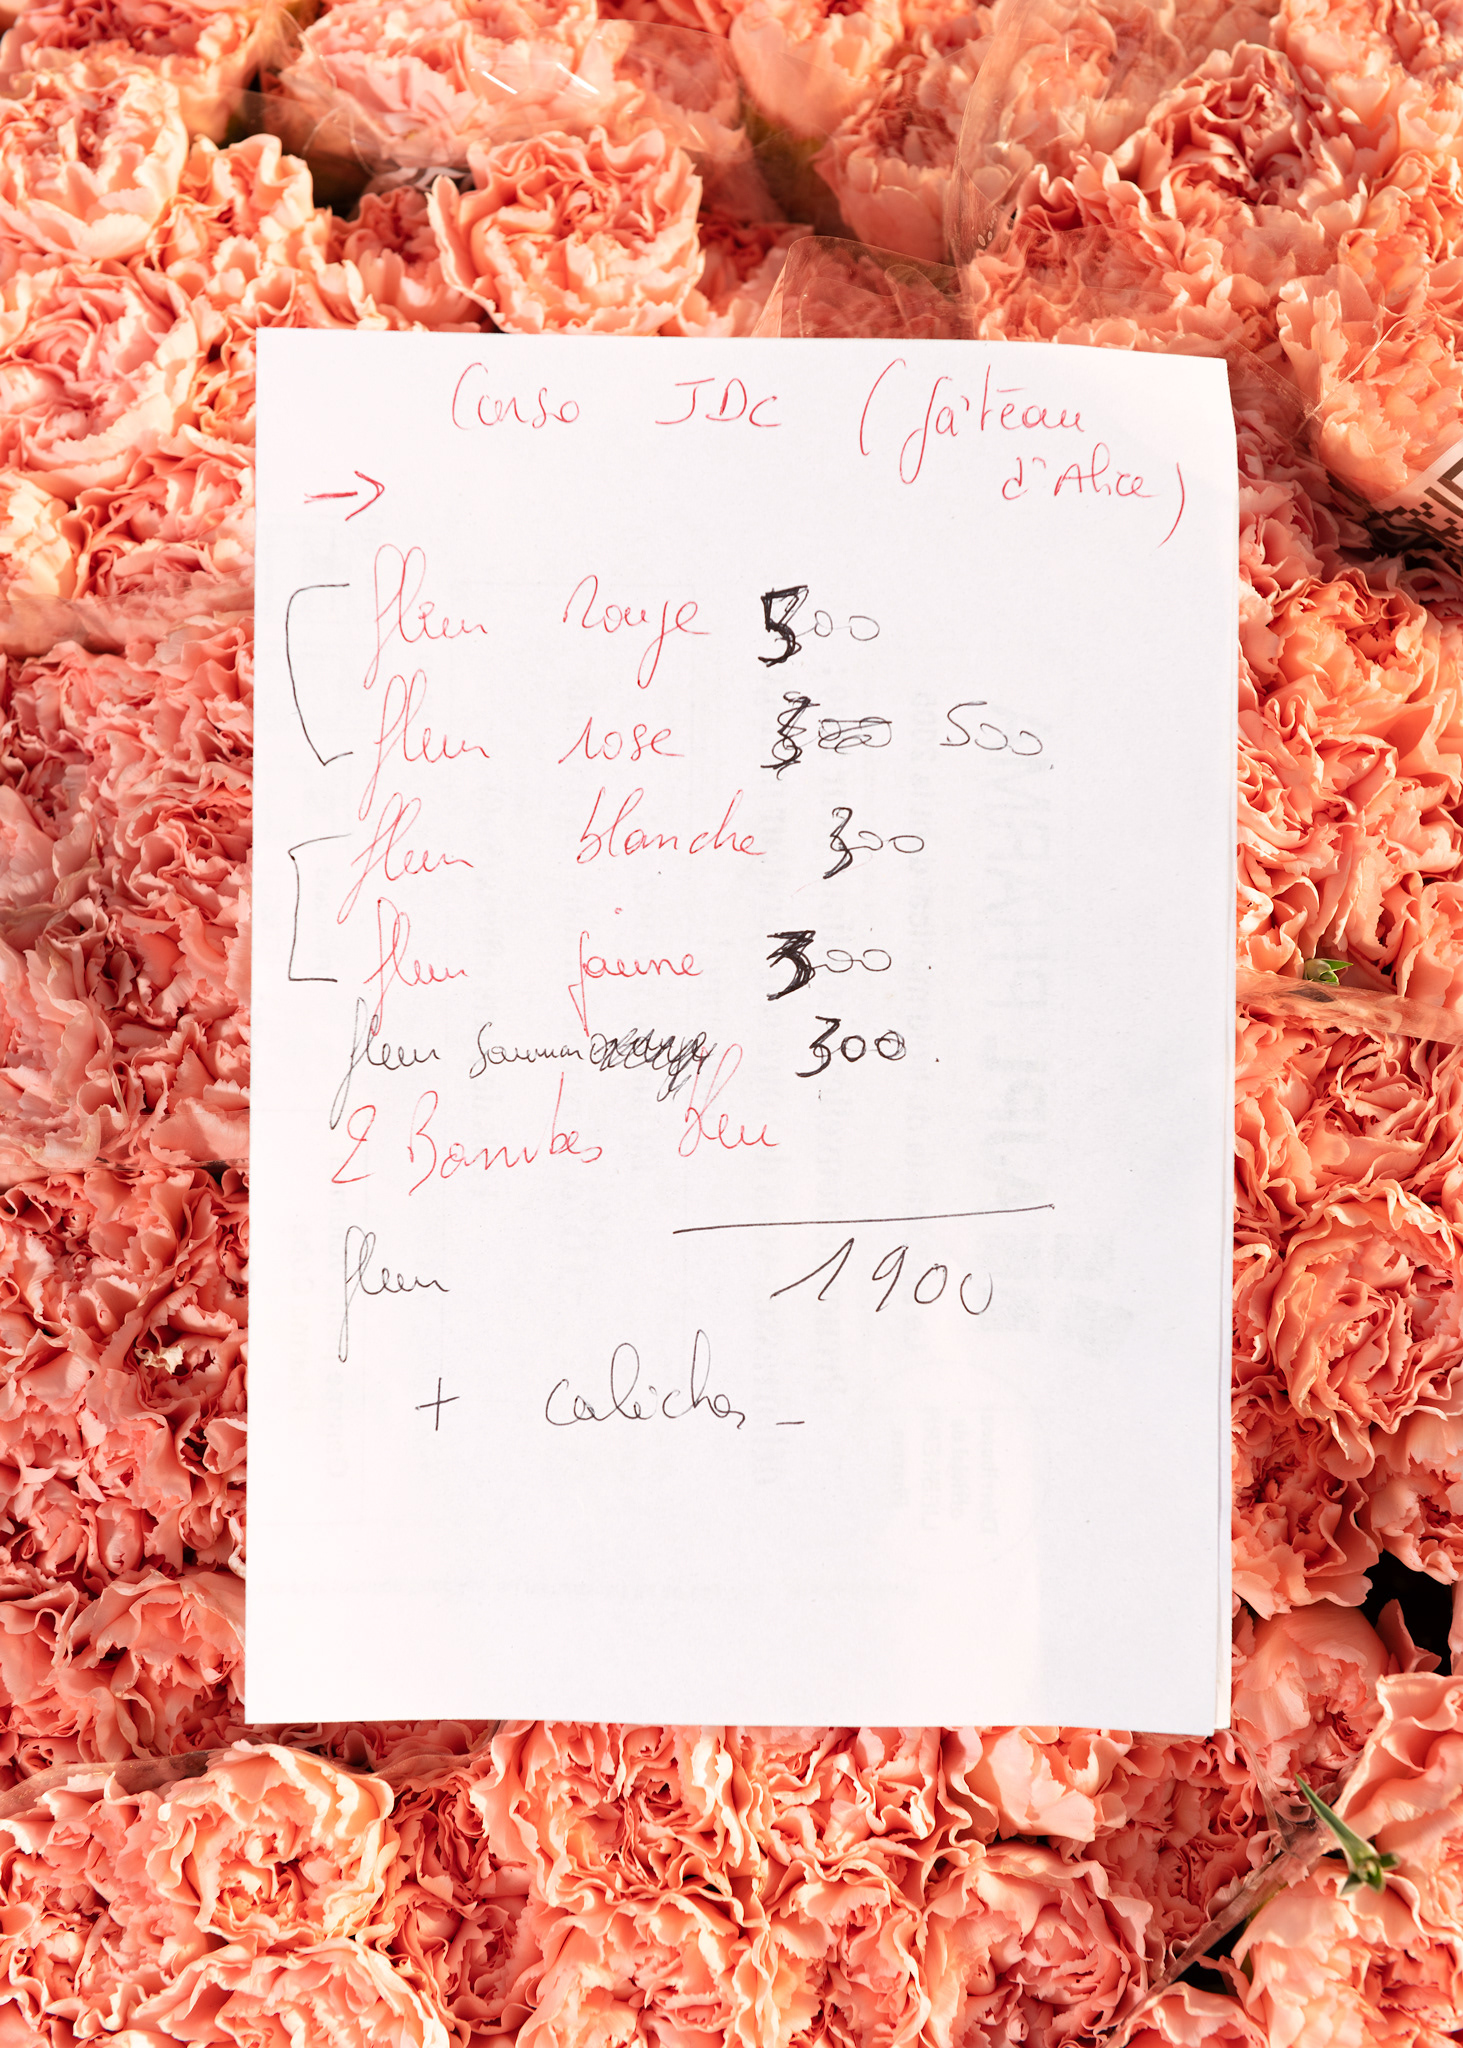 Corso JDC (gâteau
d'Alice)
→
fleur rouge 500
fleur rose 500
fleur blanche 300
fleur jaune 300
fleur saumon 300
2 Bombes bleu
1900
fleur
+ caliches -